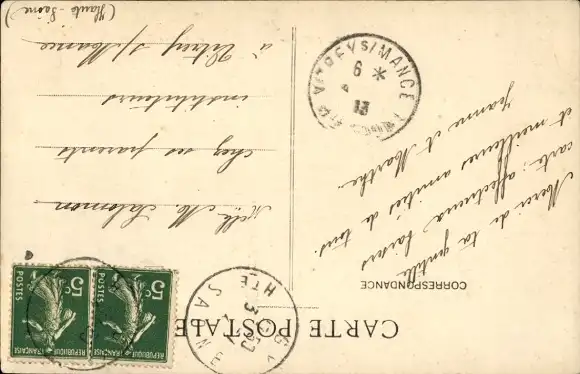 CARTE POSTALE
CORRESPONDANCE
Merci de ta gentille
carte ; affectueux baisers
et meilleures amitiés de tous.
Jeanne et Marthe.
Melle M. Salomon
chez ses parents
instituteurs
à Vitrey s/Mance
(Haute-Saône)
VITREY S/MANCE
6 *
13
HTE SAÔNE
5c
POSTES
REPUBLIQUE FRANÇAISE
5c
POSTES
REPUBLIQUE FRANÇAISE